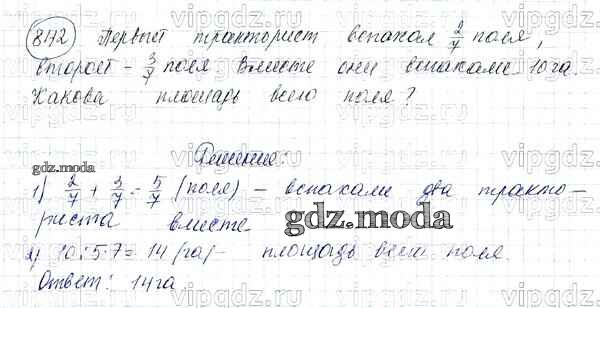 872 Первый тракторист вспахал 2/7 поля,
второй - 3/7 поля. Вместе они вспахали 10 га.
Какова площадь всего поля?
Решение:
gdz.moda
1) 2/7 + 3/7 = 5/7 (поля) - вспахали два тракто-
риста вместе
gdz.moda
2) 10:5·7= 14 (га)- площадь всего поля.
Ответ: 14 га
vipgdz.ru